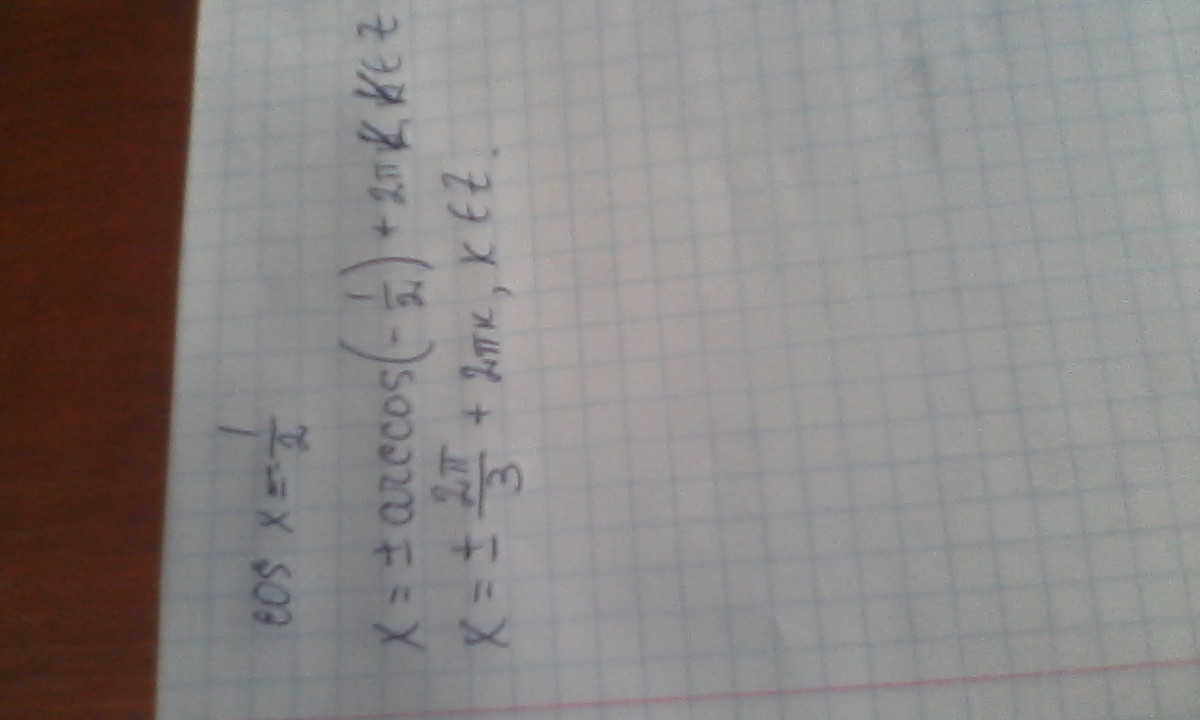 cos x = -1/2
x = ± arccos(-1/2) + 2πk, k ∈ Z
x = ± 2π/3 + 2πk, k ∈ Z.